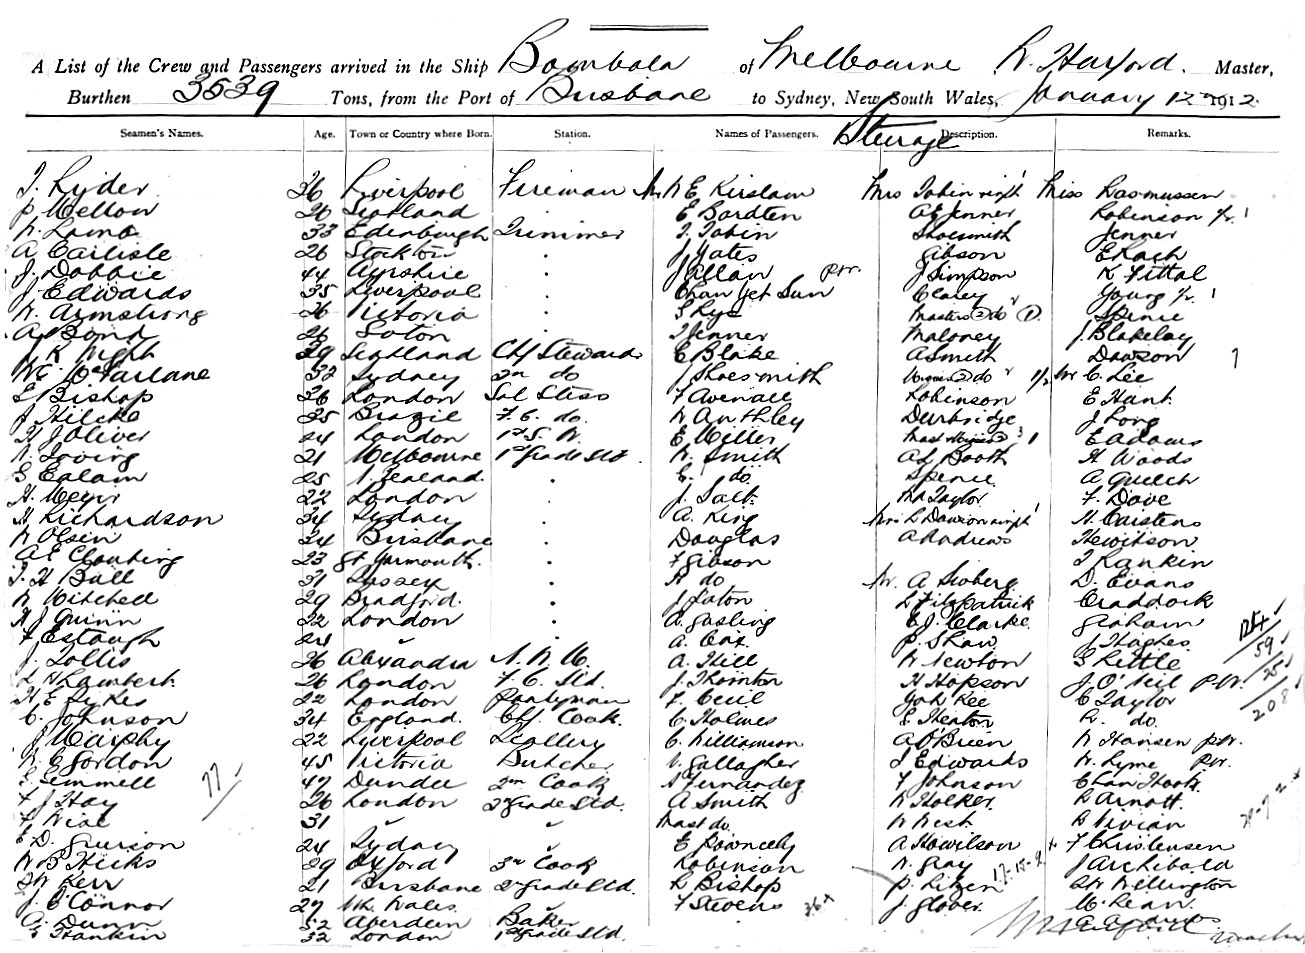 A List of the Crew and Passengers arrived in the Ship Bombala of Melbourne Master,
Burthen 3539 Tons, from the Port of Brisbane to Sydney, New South Wales, January 12th 1912.
Seamen's Names. Age. Town or Country where Born. Station. Names of Passengers. Steerage Description. Remarks.
J. Ryder 26 Liverpool Fireman Mr W E Kirslaw Mrs Tobin Miss Rasmussen
P. Mellow 26 Scotland E Bardten A E Jenner Robinson
W. Lamb 33 Edenburgh Trimmer J. Tobin Shoesmith Jenner
A Carlisle 26 Stockton J Yates Gibson E Rach
J. Dobbie 44 Ayrshire J Allan J Simpson K Fittal
J Edwards 35 Liverpool Chan Yet Sun Clarey Young
W. Armstrong 26 Victoria S Rys Masters (2) do (1) Spence
A. Bond 26 Soton Jenner Maloney J. Blakeley
K Wight 29 Scotland Chf Steward E Blake A Smith Dawson
McFarlane 32 Sydney 2nd do J Shoesmith (2) do 1/2 Mr C. Lee
E Bishop 26 London F Avenall Robinson E Hunt
J Hilcke 35 Brazil F. C. do W Anthley Durbridge J Long
H J Oliver 24 London E Miller E Adams
W. Loving 21 Melbourne 1st Grade Std W. Smith A L Booth H Woods
S Ealam 25 N. Zealand E. do Spence A Quelch
H. Meyer 22 London J. Salt Taylor F. Dave
H Richardson 34 Sydney A. King Mrs L Dawson H. Carstens
W Olsen 34 Brisbane Douglas A Andrews Hewitson
A E Clouting 23 Gt Yarmouth F Gibson J Rankin
J. H Ball 31 Sussex H do Mr. A Sioberg D. Evans
W Mitchell 29 Bradford J. Eaton L Fitzpatrick Craddock
H J Quinn 32 London A. Gosling E J. Clarke Graham
F Estaugh 24 " A. Cox P. Shaw J Hughes
J. Tollis 26 Alexandria A. Hill W Newton S Little 59
L H Lambert 26 London F. C. Std. J. Thornton H Hopson J O'Neil 25
H E Sykes 22 London Pantryman F. Cecil Yok Kee C Taylor 208
C. Johnson 34 England Chf. Cook. C. Holmes E Heaton R. do
J Murphy 22 Liverpool Scullery C. Williamson A O'Brien W Hansen
W E Gordon 45 Victoria Butcher V. Gallagher J Edwards W. Lyme
Gemmell 77 47 Dundee 2nd Cook A Fernandez F Johnson
F J Hay 26 London 2nd Grade Std. A Smith W Holker R Arnott
F Neal 31 " " Mast do W West R Vivian
E D. Grierson 24 Sydney " E Pownceby A Howilson F Christensen
W B Hicks 29 Oxford 3rd Cook Robinson W. Gray J Archibald
W Kerr 21 Brisbane 2nd Grade Std. R Bishop P. Litzen Wellington
J. O'Connor 27 Nth Wales " F Stevens J. Glover M. Kean
A. Dunn 52 Aberdeen Baker A Andrews
E Hankin 32 London 1st Grade Std.